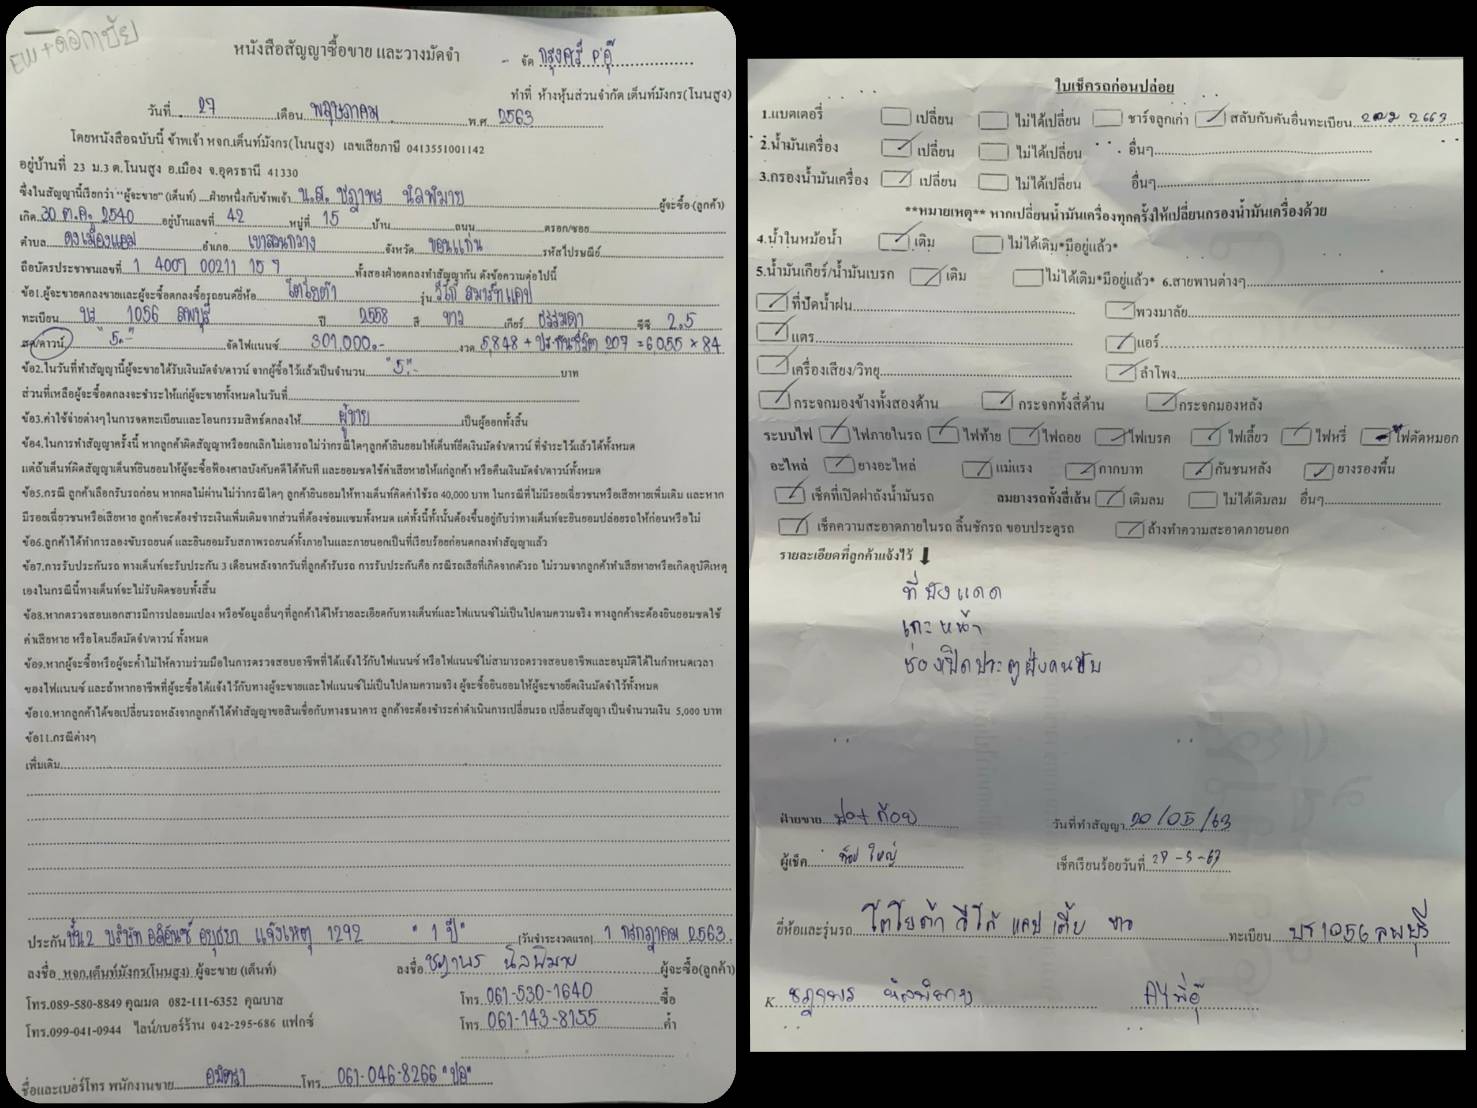 EW+ดอกเบี้ย
หนังสือสัญญาซื้อขาย และวางมัดจำ
- จัด กรุงศรี P'อุ๊
ทำที่ ห้างหุ้นส่วนจำกัด เต็นท์มังกร(โนนสูง)
วันที่ 27 เดือน พฤษภาคม พ.ศ. 2563
โดยหนังสือฉบับนี้ ข้าพเจ้า หจก.เต็นท์มังกร(โนนสูง) เลขเสียภาษี 0413551001142
อยู่บ้านที่ 23 ม.3 ต.โนนสูง อ.เมือง จ.อุดรธานี 41330
ซึ่งในสัญญานี้เรียกว่า "ผู้จะขาย" (เต็นท์) ฝ่ายหนึ่งกับข้าพเจ้า น.ส. ชฎาพร นิลพิมาย ผู้จะซื้อ (ลูกค้า)
เกิด 30 ต.ค. 2540 อยู่บ้านเลขที่ 42 หมู่ที่ 15 บ้าน ถนน ตรอก/ซอย
ตำบล ดงเมืองแอม อำเภอ เขาสวนกวาง จังหวัด ขอนแก่น รหัสไปรษณีย์
ถือบัตรประชาชนเลขที่ 1 4007 00211 15 7 ทั้งสองฝ่ายตกลงทำสัญญากัน ดังข้อความต่อไปนี้
ข้อ1.ผู้จะขายตกลงขายและผู้จะซื้อตกลงซื้อรถยนต์ยี่ห้อ โตโยต้า รุ่น วีโก้ สมาร์ทแคป
ทะเบียน บร 1056 ลพบุรี ปี 2558 สี ขาว เกียร์ ธรรมดา ซีซี 2.5
สด/ดาวน์ "5.-" จัดไฟแนนซ์ 301,000.- งวด 5,848 + ประกันชีวิต 207 = 6,055 x 84
ข้อ2.ในวันที่ทำสัญญานี้ผู้จะขายได้รับเงินมัดจำ/ดาวน์ จากผู้ซื้อไว้แล้วเป็นจำนวน "5.-" บาท
ส่วนที่เหลือผู้จะซื้อตกลงจะชำระให้แก่ผู้จะขายทั้งหมดในวันที่
ข้อ3.ค่าใช้จ่ายต่างๆในการจดทะเบียนและโอนกรรมสิทธิ์ตกลงให้ ผู้ขาย เป็นผู้ออกทั้งสิ้น
ข้อ4.ในการทำสัญญาครั้งนี้ หากลูกค้าผิดสัญญาหรือยกเลิกไม่เอารถ ไม่ว่ากรณีใดๆลูกค้ายินยอมให้เต็นท์ยึดเงินมัดจำ/ดาวน์ ที่ชำระไว้แล้วได้ทั้งหมด
แต่ถ้าเต็นท์ผิดสัญญาเต็นท์ยินยอมให้ผู้จะซื้อฟ้องศาลบังคับคดีได้ทันที และยอมชดใช้ค่าเสียหายให้แก่ลูกค้า หรือคืนเงินมัดจำ/ดาวน์ทั้งหมด
ข้อ5.กรณี ลูกค้าเลือกรับรถก่อน หากผลไม่ผ่านไม่ว่ากรณีใดๆ ลูกค้ายินยอมให้ทางเต็นท์คิดค่าใช้รถ 40,000 บาท ในกรณีที่ไม่มีรอยเฉี่ยวชนหรือเสียหายเพิ่มเติม และหาก
มีรอยเฉี่ยวชนหรือเสียหาย ลูกค้าจะต้องชำระเงินเพิ่มเติมจากส่วนที่ต้องซ่อมแซมทั้งหมด แต่ทั้งนี้ทั้งนั้นต้องขึ้นอยู่กับว่าทางเต็นท์จะยินยอมปล่อยรถให้ก่อนหรือไม่
ข้อ6.ลูกค้าได้ทำการลองขับรถยนต์ และยินยอมรับสภาพรถยนต์ทั้งภายในและภายนอกเป็นที่เรียบร้อยก่อนตกลงทำสัญญาแล้ว
ข้อ7.การรับประกันรถ ทางเต็นท์จะรับประกัน 3 เดือนหลังจากวันที่ลูกค้ารับรถ การรับประกันคือ กรณีรถเสียที่เกิดจากตัวรถ ไม่รวมจากลูกค้าทำเสียหายหรือเกิดอุบัติเหตุ
เองในกรณีนี้ทางเต็นท์จะไม่รับผิดชอบทั้งสิ้น
ข้อ8.หากตรวจสอบเอกสารมีการปลอมแปลง หรือข้อมูลอื่นๆที่ลูกค้าได้ให้รายละเอียดกับทางเต็นท์และไฟแนนซ์ไม่เป็นไปตามความจริง ทางลูกค้าจะต้องยินยอมชดใช้
ค่าเสียหาย หรือโดนยึดมัดจำ/ดาวน์ ทั้งหมด
ข้อ9.หากผู้จะซื้อหรือผู้จะค้ำไม่ให้ความร่วมมือในการตรวจสอบอาชีพที่ได้แจ้งไว้กับไฟแนนซ์ หรือไฟแนนซ์ไม่สามารถตรวจสอบอาชีพและอนุมัติได้ในกำหนดเวลา
ของไฟแนนซ์ และถ้าหากอาชีพที่ผู้จะซื้อได้แจ้งไว้กับทางผู้จะขายและไฟแนนซ์ไม่เป็นไปตามความจริง ผู้จะซื้อยินยอมให้ผู้จะขายยึดเงินมัดจำไว้ทั้งหมด
ข้อ10.หากลูกค้าได้ขอเปลี่ยนรถหลังจากลูกค้าได้ทำสัญญาขอสินเชื่อกับทางธนาคาร ลูกค้าจะต้องชำระค่าดำเนินการเปลี่ยนรถ เปลี่ยนสัญญา เป็นจำนวนเงิน 5,000 บาท
ข้อ11.กรณีต่างๆ
เพิ่มเติม
ประกัน ชั้น2 บริษัท อลิอันซ์ อยุธยา แจ้งเหตุ 1292 "1 ปี" (วันชำระงวดแรก) 1 กรกฎาคม 2563.
ลงชื่อ หจก.เต็นท์มังกร(โนนสูง) ผู้จะขาย (เต็นท์) ลงชื่อ ชฎาพร นิลพิมาย ผู้จะซื้อ(ลูกค้า)
โทร.089-580-8849 คุณมด 082-111-6352 คุณบาส โทร. 061-530-1640 ซื้อ
โทร.099-041-0944 ไลน์/เบอร์ร้าน 042-295-686 แฟกซ์ โทร. 061-143-8155 ค้ำ
ชื่อและเบอร์โทร พนักงานขาย อมิตรา โทร 061-046-8266 "ปอ"
ใบเช็ครถก่อนปล่อย
1.แบตเตอรี่ เปลี่ยน ไม่ได้เปลี่ยน ชาร์จลูกเก่า สลับกับคันอื่นทะเบียน 2663
2.น้ำมันเครื่อง เปลี่ยน ไม่ได้เปลี่ยน อื่นๆ
3.กรองน้ำมันเครื่อง เปลี่ยน ไม่ได้เปลี่ยน อื่นๆ
**หมายเหตุ** หากเปลี่ยนน้ำมันเครื่องทุกครั้งให้เปลี่ยนกรองน้ำมันเครื่องด้วย
4.น้ำในหม้อน้ำ เติม ไม่ได้เติม*มีอยู่แล้ว*
5.น้ำมันเกียร์/น้ำมันเบรค เติม ไม่ได้เติม*มีอยู่แล้ว* 6.สายพานต่างๆ
ที่ปัดน้ำฝน พวงมาลัย
แตร แอร์
เครื่องเสียง/วิทยุ ลำโพง
กระจกมองข้างทั้งสองด้าน กระจกทั้งสี่ด้าน กระจกมองหลัง
ระบบไฟ ไฟภายในรถ ไฟท้าย ไฟถอย ไฟเบรค ไฟเลี้ยว ไฟหรี่ ไฟตัดหมอก
อะไหล่ ยางอะไหล่ แม่แรง กากบาท กันชนหลัง ยางรองพื้น
เช็คที่เปิดฝาถังน้ำมันรถ ลมยางรถทั้งสี่เส้น เติมลม ไม่ได้เติมลม อื่นๆ
เช็คความสะอาดภายในรถ ลิ้นชักรถ ขอบประตูรถ ล้างทำความสะอาดภายนอก
รายละเอียดที่ลูกค้าแจ้งไว้
ที่บังแดด
เกะหน้า
ช่องเปิดประตูฝั่งคนขับ
ฝ่ายขาย ปอ+ก้อย วันที่ทำสัญญา 20/05/63
ผู้เช็ค ใหญ่ เช็คเรียบร้อยวันที่ 27-5-63
ยี่ห้อและรุ่นรถ โตโยต้า วีโก้ แคป เตี้ย ขาว ทะเบียน บร 1056 ลพบุรี
K ชฎาพร นิลพิมาย AY พี่อุ๊